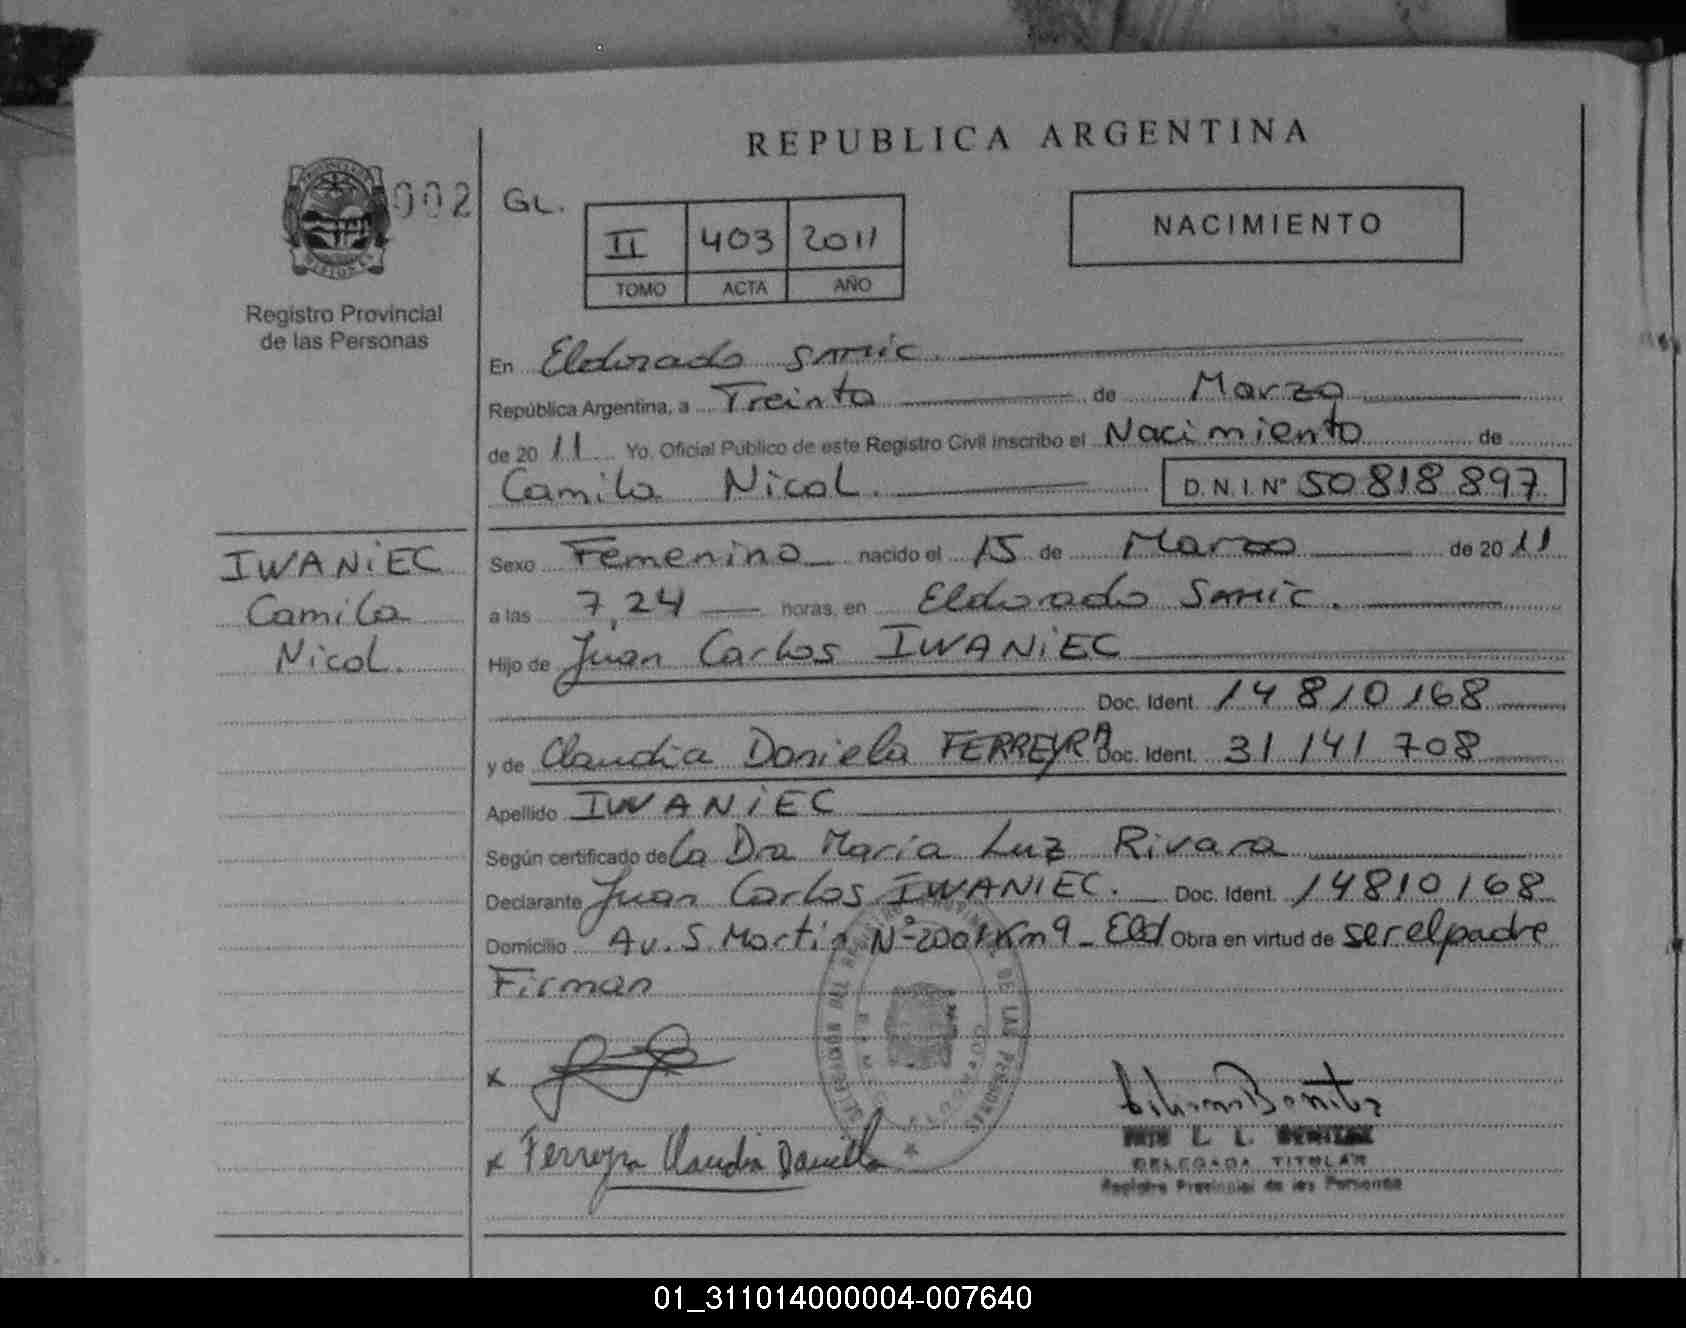 REPUBLICA ARGENTINA
PROVINCIA
MISIONES
002
GL.
NACIMIENTO
II 403 2011
TOMO ACTA AÑO
Registro Provincial
de las Personas
En Eldorado SAMIC.
República Argentina, a Treinta de Marzo
de 2011 Yo, Oficial Público de este Registro Civil inscribo el Nacimiento de
Camila Nicol. D. N. I. Nº 50 818 897
IWANiEC
Camila
Nicol.
Sexo Femenino nacido el 15 de Marzo de 2011
a las 7,24 horas, en Eldorado SAMIC.
Hijo de Juan Carlos IWANiEC
Doc. Ident. 14 810 168
y de Claudia Daniela FERREYRA Doc. Ident. 31 141 708
Apellido IWANiEC
Según certificado de La Dra María Luz Rivara
Declarante Juan Carlos IWANIEC. Doc. Ident. 14810168
Domicilio Av. S. Martin Nº 2001 Km 9 - Eld Obra en virtud de ser el padre
Firman
x
x Ferreyra Claudia Daniela
DELEGADA TITULAR
Registro Provincial de las Personas
01_311014000004-007640